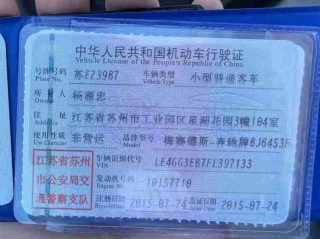 中华人民共和国机动车行驶证
Vehicle License of the People's Republic of China
号牌号码 苏E239B7 车辆类型 小型普通客车
Vehicle Type
所有人 杨源忠
Owner
住址 江苏省苏州市工业园区星湖花园3幢104室
使用性质 非营运 品牌型号 梅赛德斯-奔驰牌BJ6453F
江苏省苏州
市公安局交
通警察支队
车辆识别代号 LE4GG3EB7FL397133
VIN
发动机号码 10157710
Engine No.
注册日期 2015-07-24 发证日期 2015-07-24
Register Date Issue Date